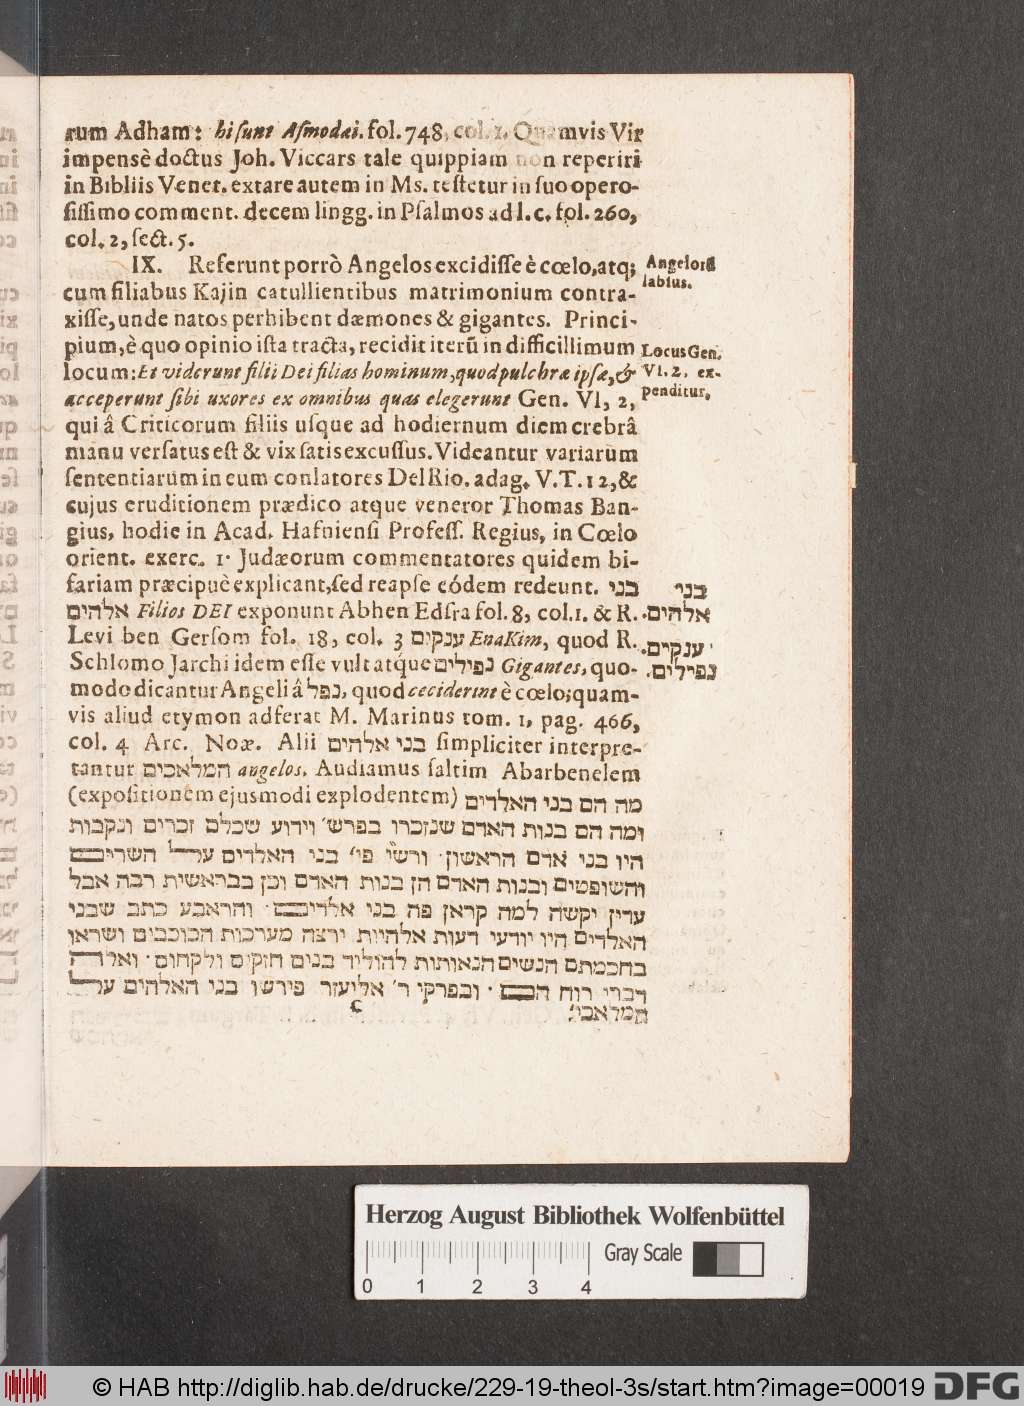 rum Adham: hi ſunt Aſmodæi. fol. 748, col. 1. Quamvis Vir
impensè doctus Joh. Viccars tale quippiam non reperiri
in Bibliis Venet. extare autem in Ms. teſtetur in ſuo opero-
ſiſſimo comment. decem lingg. in Pſalmos ad l. c. fol. 260,
col. 2, ſect. 5.
IX. Referunt porrò Angelos excidiſſe è cœlo, atq;
cum filiabus Kajin catullientibus matrimonium contra-
xiſſe, unde natos perhibent dæmones & gigantes. Princi-
pium, è quo opinio iſta tracta, recidit iterũ in difficillimum
locum: Et viderunt filii Dei filias hominum, quod pulchræ ipſæ, &
acceperunt ſibi uxores ex omnibus quas elegerunt Gen. VI, 2,
qui â Criticorum filiis uſque ad hodiernum diem crebrâ
manu verſatus eſt & vix ſatis excuſſus. Videantur variarum
ſententiarum in eum conlatores Del Rio. adag. V. T. 12, &
cujus eruditionem prædico atque veneror Thomas Ban-
gius, hodie in Acad. Hafnienſi Profeſſ. Regius, in Cœlo
orient. exerc. 1. Judæorum commentatores quidem bi-
fariam præcipuè explicant, ſed reapſe eódem redeunt. בני
אלהים Filios DEI exponunt Abhen Edſra fol. 8, col. 1. & R.
Levi ben Gerſom fol. 18, col. 3 ענקים EnaKim, quod R.
Schlomo Jarchi idem eſſe vult atque נפילים Gigantes, quo-
modo dicantur Angeli â נפל, quod ceciderint è cœlo; quam-
vis aliud etymon adferat M. Marinus tom. 1, pag. 466,
col. 4 Arc. Noæ. Alii בני אלהים ſimpliciter interpre-
tantur המלאכים angelos. Audiamus ſaltim Abarbenelem
(expoſitionem ejusmodi explodentem) מה הם בני האלדים
ומה הם בנות האדם שנזכרו בפרש׳ וידוע שכלם זכרים ונקבות
היו בני אדם הראשון. ורש״י פי׳ בני האלדים על השרים
והשופטים ובנות האדם הן בנות האדם וכן בבראשית רבה אבל
עדין יקשה למה קראן פה בני אלדים. והראבע כתב שבני
האלדים היו יודעי דעות אלהיות ירצה מערכות הכוכבים ושראו
בחכמתם הנשים הנאותות להוליד בנים חזקים ולקחום. ואלה
דברי רוח הם. ובפרקי ר׳ אליעזר פירשו בני האלהים על
המלאכי׳
c
Angelorũ
labſus.
Locus Gen.
VI. 2. ex-
penditur.
בני
אלהים.
ענקים.
נפילים.
Herzog August Bibliothek Wolfenbüttel
Gray Scale
0 1 2 3 4
© HAB http://diglib.hab.de/drucke/229-19-theol-3s/start.htm?image=00019
DFG